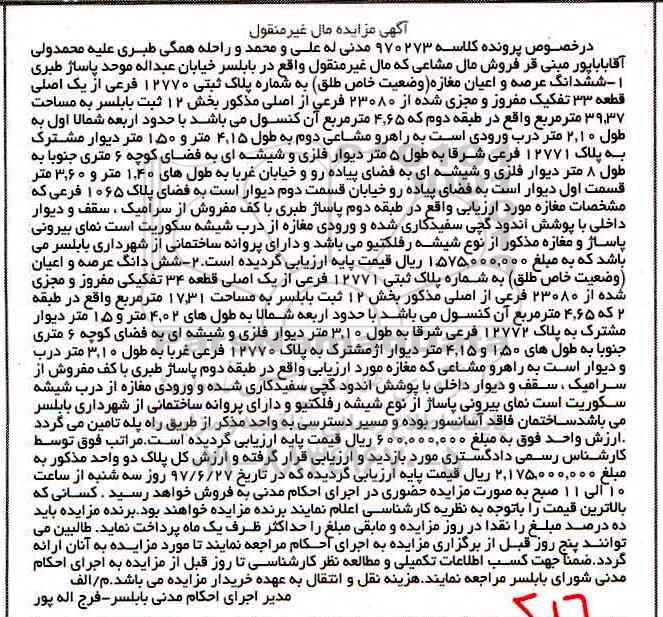 آگهی مزایده مال غیرمنقول
درخصوص پرونده کلاسه ۹۷۰۲۷۳ مدنی له علی و محمد و راحله همگی طبری علیه محمدولی
آقاباباپور مبنی قر فروش مال مشاعی که مال غیرمنقول واقع در بابلسر خیابان عبداله موحد پاساژ طبری
۱-ششدانگ عرصه و اعیان مغازه(وضعیت خاص طلق) به شماره پلاک ثبتی ۱۲۷۷۰ فرعی از یک اصلی
قطعه ۳۳ تفکیک مفروز و مجزی شده از ۲۳۰۸۰ فرعی از اصلی مذکور بخش ۱۲ ثبت بابلسر به مساحت
۳۹،۳۷ مترمربع واقع در طبقه دوم که ۴،۶۵ مترمربع آن کنسول می باشد با حدود اربعه شمالا اول به
طول ۲،۱۰ متر درب ورودی است به راهرو مشاعی دوم به طول ۴،۱۵ متر و ۱،۵۰ متر دیوار مشترک
به پلاک ۱۲۷۷۱ فرعی شرقا به طول ۵ متر دیوار فلزی و شیشه ای به فضای کوچه ۶ متری جنوبا به
طول ۸ متر دیوار فلزی و شیشه ای به فضای پیاده رو و خیابان غربا به طول های ۱،۴۰ متر و ۳،۶۰ متر
قسمت اول دیوار است به فضای پیاده رو خیابان قسمت دوم دیوار است به فضای پلاک ۱۰۶۵ فرعی که
مشخصات مغازه مورد ارزیابی واقع در طبقه دوم پاساژ طبری با کف مفروش از سرامیک ، سقف و دیوار
داخلی با پوشش اندود گچی سفیدکاری شده و ورودی مغازه از درب شیشه سکوریت است نمای بیرونی
پاساژ و مغازه مذکور از نوع شیشه رفلکتیو می باشد و دارای پروانه ساختمانی از شهرداری بابلسر می
باشد که به مبلغ ۱،۵۷۵،۰۰۰،۰۰۰ ریال قیمت پایه ارزیابی گردیده است.۲-شش دانگ عرصه و اعیان
(وضعیت خاص طلق) به شماره پلاک ثبتی ۱۲۷۷۱ فرعی از یک اصلی قطعه ۳۴ تفکیکی مفروز و مجزی
شده از ۲۳۰۸۰ فرعی از اصلی مذکور بخش ۱۲ ثبت بابلسر به مساحت ۱۷،۳۱ مترمربع واقع در طبقه
۲ که ۴،۶۵ مترمربع آن کنسول می باشد با حدود اربعه شمالا به طول های ۴،۰۲ متر و ۱،۵ متر دیوار
مشترک به پلاک ۱۲۷۷۲ فرعی شرقا به طول ۳،۱۰ متر دیوار فلزی و شیشه ای به فضای کوچه ۶ متری
جنوبا به طول های ۱،۵۰ و ۴،۱۵ متر دیوار مشترک به پلاک ۱۲۷۷۰ فرعی غربا به طول ۳،۱۰ متر درب
و دیوار است به راهرو مشاعی که مغازه مورد ارزیابی واقع در طبقه دوم پاساژ طبری با کف مفروش از
سرامیک ، سقف و دیوار داخلی با پوشش اندود گچی سفیدکاری شده و ورودی مغازه از درب شیشه
سکوریت است نمای بیرونی پاساژ از نوع شیشه رفلکتیو و دارای پروانه ساختمانی از شهرداری بابلسر
می باشدساختمان فاقد آسانسور بوده و مسیر دسترسی به واحد مذکر از طریق راه پله تامین می گردد
.ارزش واحد فوق به مبلغ ۶۰۰،۰۰۰،۰۰۰ ریال قیمت پایه ارزیابی گردیده است.مراتب فوق توسط
کارشناس رسمی دادگستری مورد بازدید و ارزیابی قرار گرفته و ارزش کل پلاک دو واحد مذکور به
مبلغ ۲،۱۷۵،۰۰۰،۰۰۰ ریال قیمت پایه ارزیابی گردیده که در تاریخ ۹۷/۶/۲۷ روز سه شنبه از ساعت
۱۰ الی ۱۱ صبح به صورت مزایده حضوری در اجرای احکام مدنی به فروش خواهد رسید . کسانی که
بالاترین قیمت را باتوجه به نظریه کارشناسی اعلام نمایند برنده مزایده خواهند بود.برنده مزایده باید
ده درصد مبلغ را نقدا در روز مزایده و مابقی مبلغ را حداکثر ظرف یک ماه پرداخت نماید. طالبین می
توانند پنج روز قبل از برگزاری مزایده به اجرای احکام مراجعه نمایند تا مورد مزایده به آنان ارائه
گردد.ضمنا جهت کسب اطلاعات تکمیلی و مطالعه نظر کارشناسی تا روز قبل از مزایده به اجرای احکام
مدنی شورای بابلسر مراجعه نمایند.هزینه نقل و انتقال به عهده خریدار مزایده می باشد.م/الف
مدیر اجرای احکام مدنی بابلسر-فرج اله پور